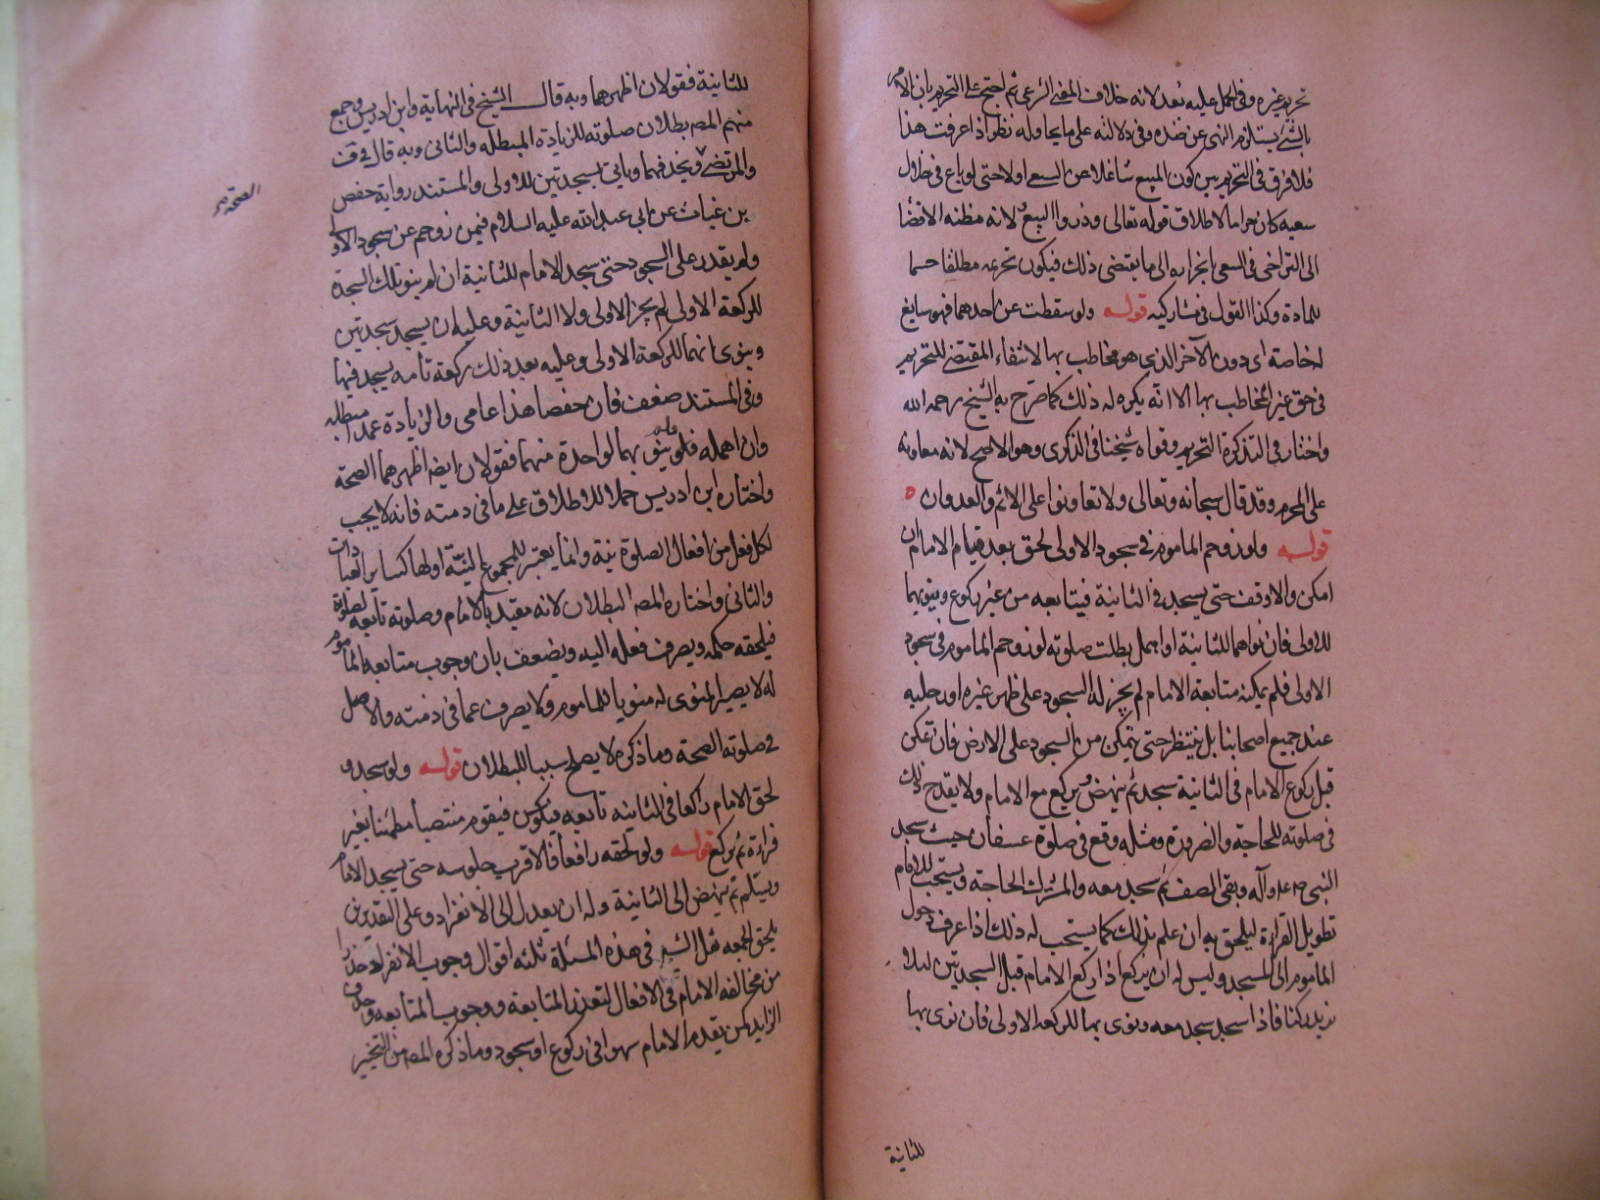 تحريم غيره وفي الحمل عليه بعد لانه خلاف المعنى الشرعي ثم احتج على التحريم بان الامر
بالشئ يستلزم النهى عن ضده وفي دلالته على ما يحاوله نظر اذا عرفت هذا
فلا فرق في التحريم بين كون المبيع شاغلا عن السعى اولا حتى لو باع في خلال
سعيه كان حراما لاطلاق قوله تعالى وذروا البيع ولانه مظنة الافضا
الى التراخى في السعى انجرا به الى ما يقتضى ذلك فيكون تحريمه مطلقا حسما
للمادة وكذا القول في مشاركيه قوله ولو سقطت عن احدهما فهو سايغ
له خاصة اى دون الآخر الذى هو مخاطب بها لانتفاء المقتضى للتحريم
في حق غير المخاطب بها الا انه يكره له ذلك كما صرح به الشيخ رحمه الله
واختار في التذكرة التحريم وقواه شيخنا في الذكرى وهو الاصح لانه معاونة
على المحرم وقد قال سبحانه وتعالى ولا تعاونوا على الاثم والعدوان ه
قوله ولو زوحم الماموم في سجود الاولى لحق بعد قيام الامام ان
امكن والا وقف حتى يسجد في الثانية فيتابعه من غير ركوع وينويهما
للاولى فان نواهما للثانية او اهمل بطلت صلوته لو زوحم الماموم في سجود
الاولى فلم يمكنه متابعة الامام لم يجز له السجود على ظهر غيره او رجليه
عند جميع اصحابنا بل ينتظر حتى يتمكن من السجود على الارض فان تمكن
قبل ركوع الامام في الثانية سجد ثم ينهض ويركع مع الامام ولا يقدح ذلك
في صلوته للحاجة والضرورة ومثله وقع في صلوة عسفان حيث سجد
النبى صلى الله عليه وآله وبقى الصف ثم سجد معه والمشترك الحاجة ويستحب للامام
تطويل القراءة ليلحق به ان علم بذلك كما يستحب له ذلك اذا عرف دخول
الماموم الى المسجد وليس له ان يركع اذا ركع الامام قبل السجدتين لئلا
يزيد ركنا فاذا سجد سجد معه ونوى بهما للركعة الاولى فان نوى بها
للثانية
للثانية فقولان اظهرهما وبه قال الشيخ في النهاية وابن ادريس وجمع
منهم المص بطلان صلوته للزيادة المبطلة والثانى وبه قال في ف
والمرتضى ويحذفهما وياتى بسجدتين للاولى والمستند رواية حفص
بن غياث عن ابى عبد الله عليه السلام فيمن زوحم عن سجود الاولى
ولم يقدر على السجود حتى سجد الامام للثانية ان لم ينو تلك السجدة
للركعة الاولى لم يجز الاولى ولا الثانية وعليه ان يسجد سجدتين
وينوى انهما للركعة الاولى وعليه بعد ذلك ركعة تامة يسجد فيها
وفي المستند ضعف فان حفصا هذا عامى والزيادة عمدا مبطلة
وان اهمله فلم ينو بهما لواحدة منهما فقولان ايضا اظهرهما الصحة
واختاره ابن ادريس حملا للاطلاق على ما في ذمته فانه لا يجب
لكل فعل من افعال الصلوة نية وانما يعتبر للمجموع النية اولها كساير العبادات
والثانى واختاره المص البطلان لانه مقيد بالامام وصلوته تابعة لصلوته
فيلحقه حكمه ويصرف فعله اليه ويضعف بان وجوب متابعة الماموم
له لا يصير المنوى له منويا للماموم ولا يصرف عما في ذمته والاصل
في صلوته الصحة وما ذكره لا يصلح سببا للبطلان قوله ولو سجد و
لحق الامام راكعا في الثانية تابعه فيقوم منتصبا مطمئنا بغير
قراءة ثم يركع قوله ولو لحقه رافعا فالاقرب جلوسه حتى يسجد الامام
ويسلم ثم ينهض الى الثانية وله ان يعدل الى الانفراد وعلى التقديرين
يلحق الجمعة نقل في هذه المسئلة ثلثة اقوال وجوب الانفراد حذرا
من مخالفة الامام في الافعال لتعذر المتابعة ووجوب المتابعة وحذف
الزايد كمن يقدم الامام سهوا في ركوع او سجود وما ذكره المص من التخيير